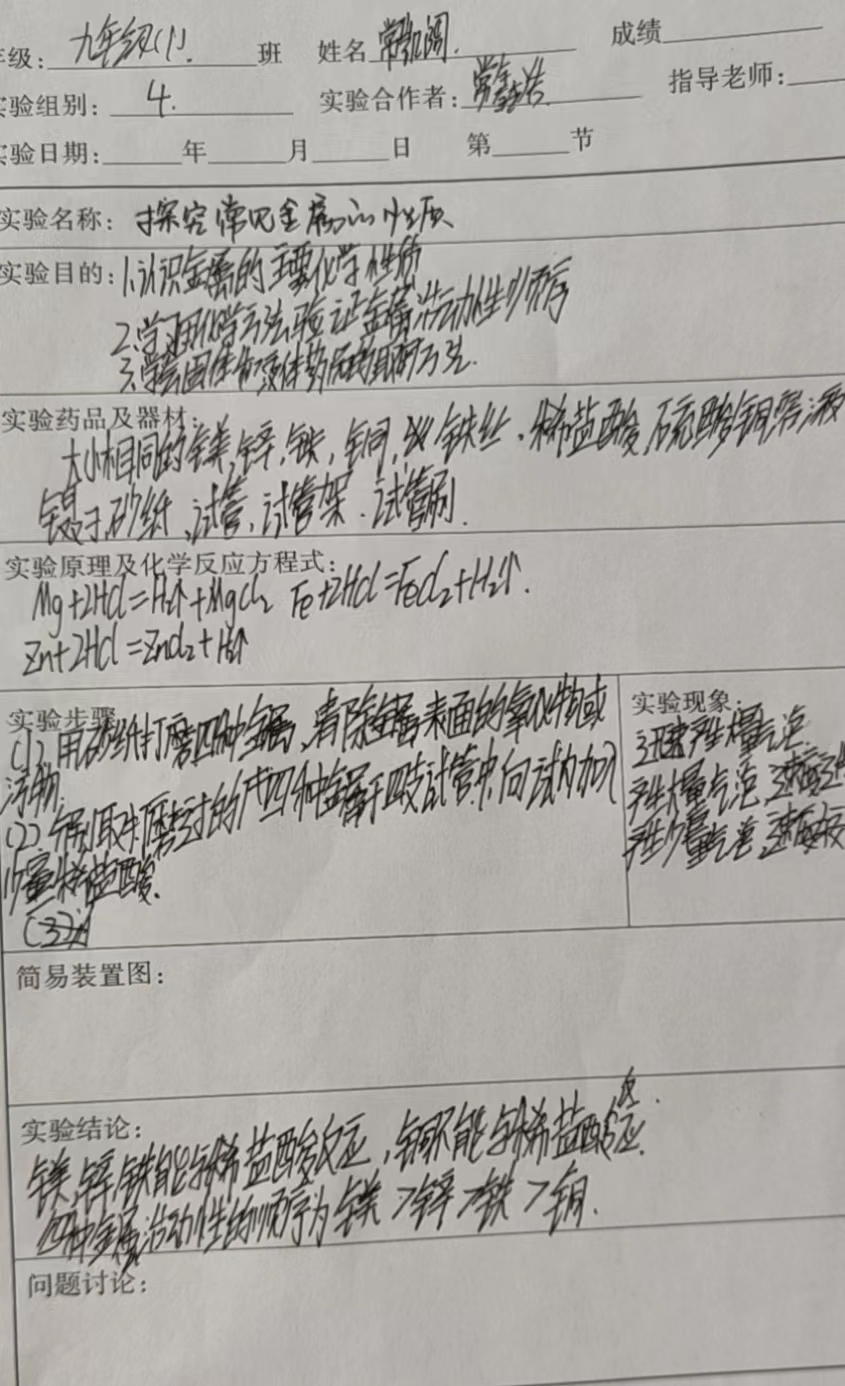 年级：九年级(1).班 姓名 常凯阔. 成绩
实验组别：4. 实验合作者：常鑫浩 指导老师：
实验日期：年 月 日 第 节
实验名称：探究常见金属的性质
实验目的：1.认识金属的主要化学性质
2.学习用化学方法验证金属活动性顺序
3.学会固体和液体药品的取用方法.
实验药品及器材：
大小相同的镁,锌,铁,铜,铁丝、稀盐酸,硫酸铜溶液
镊子,砂纸、试管、试管架、试管刷.
实验原理及化学反应方程式：
Mg+2HCl=H₂↑+MgCl₂ Fe+2HCl=FeCl₂+H₂↑.
Zn+2HCl=ZnCl₂+H₂↑
实验步骤 实验现象：
(1).用砂纸打磨四种金属,清除金属表面的氧化物或
污物.
(2).分别取打磨过的四种金属于四支试管中,向试内加入
少量稀盐酸.
(3)
迅速产生大量气泡
产生大量气泡,速度
产生少量气泡,速度
简易装置图：
实验结论：
镁,锌,铁能与稀盐酸反应,铜不能与稀盐酸反应.
四种金属活动性的顺序为镁>锌>铁>铜.
问题讨论：